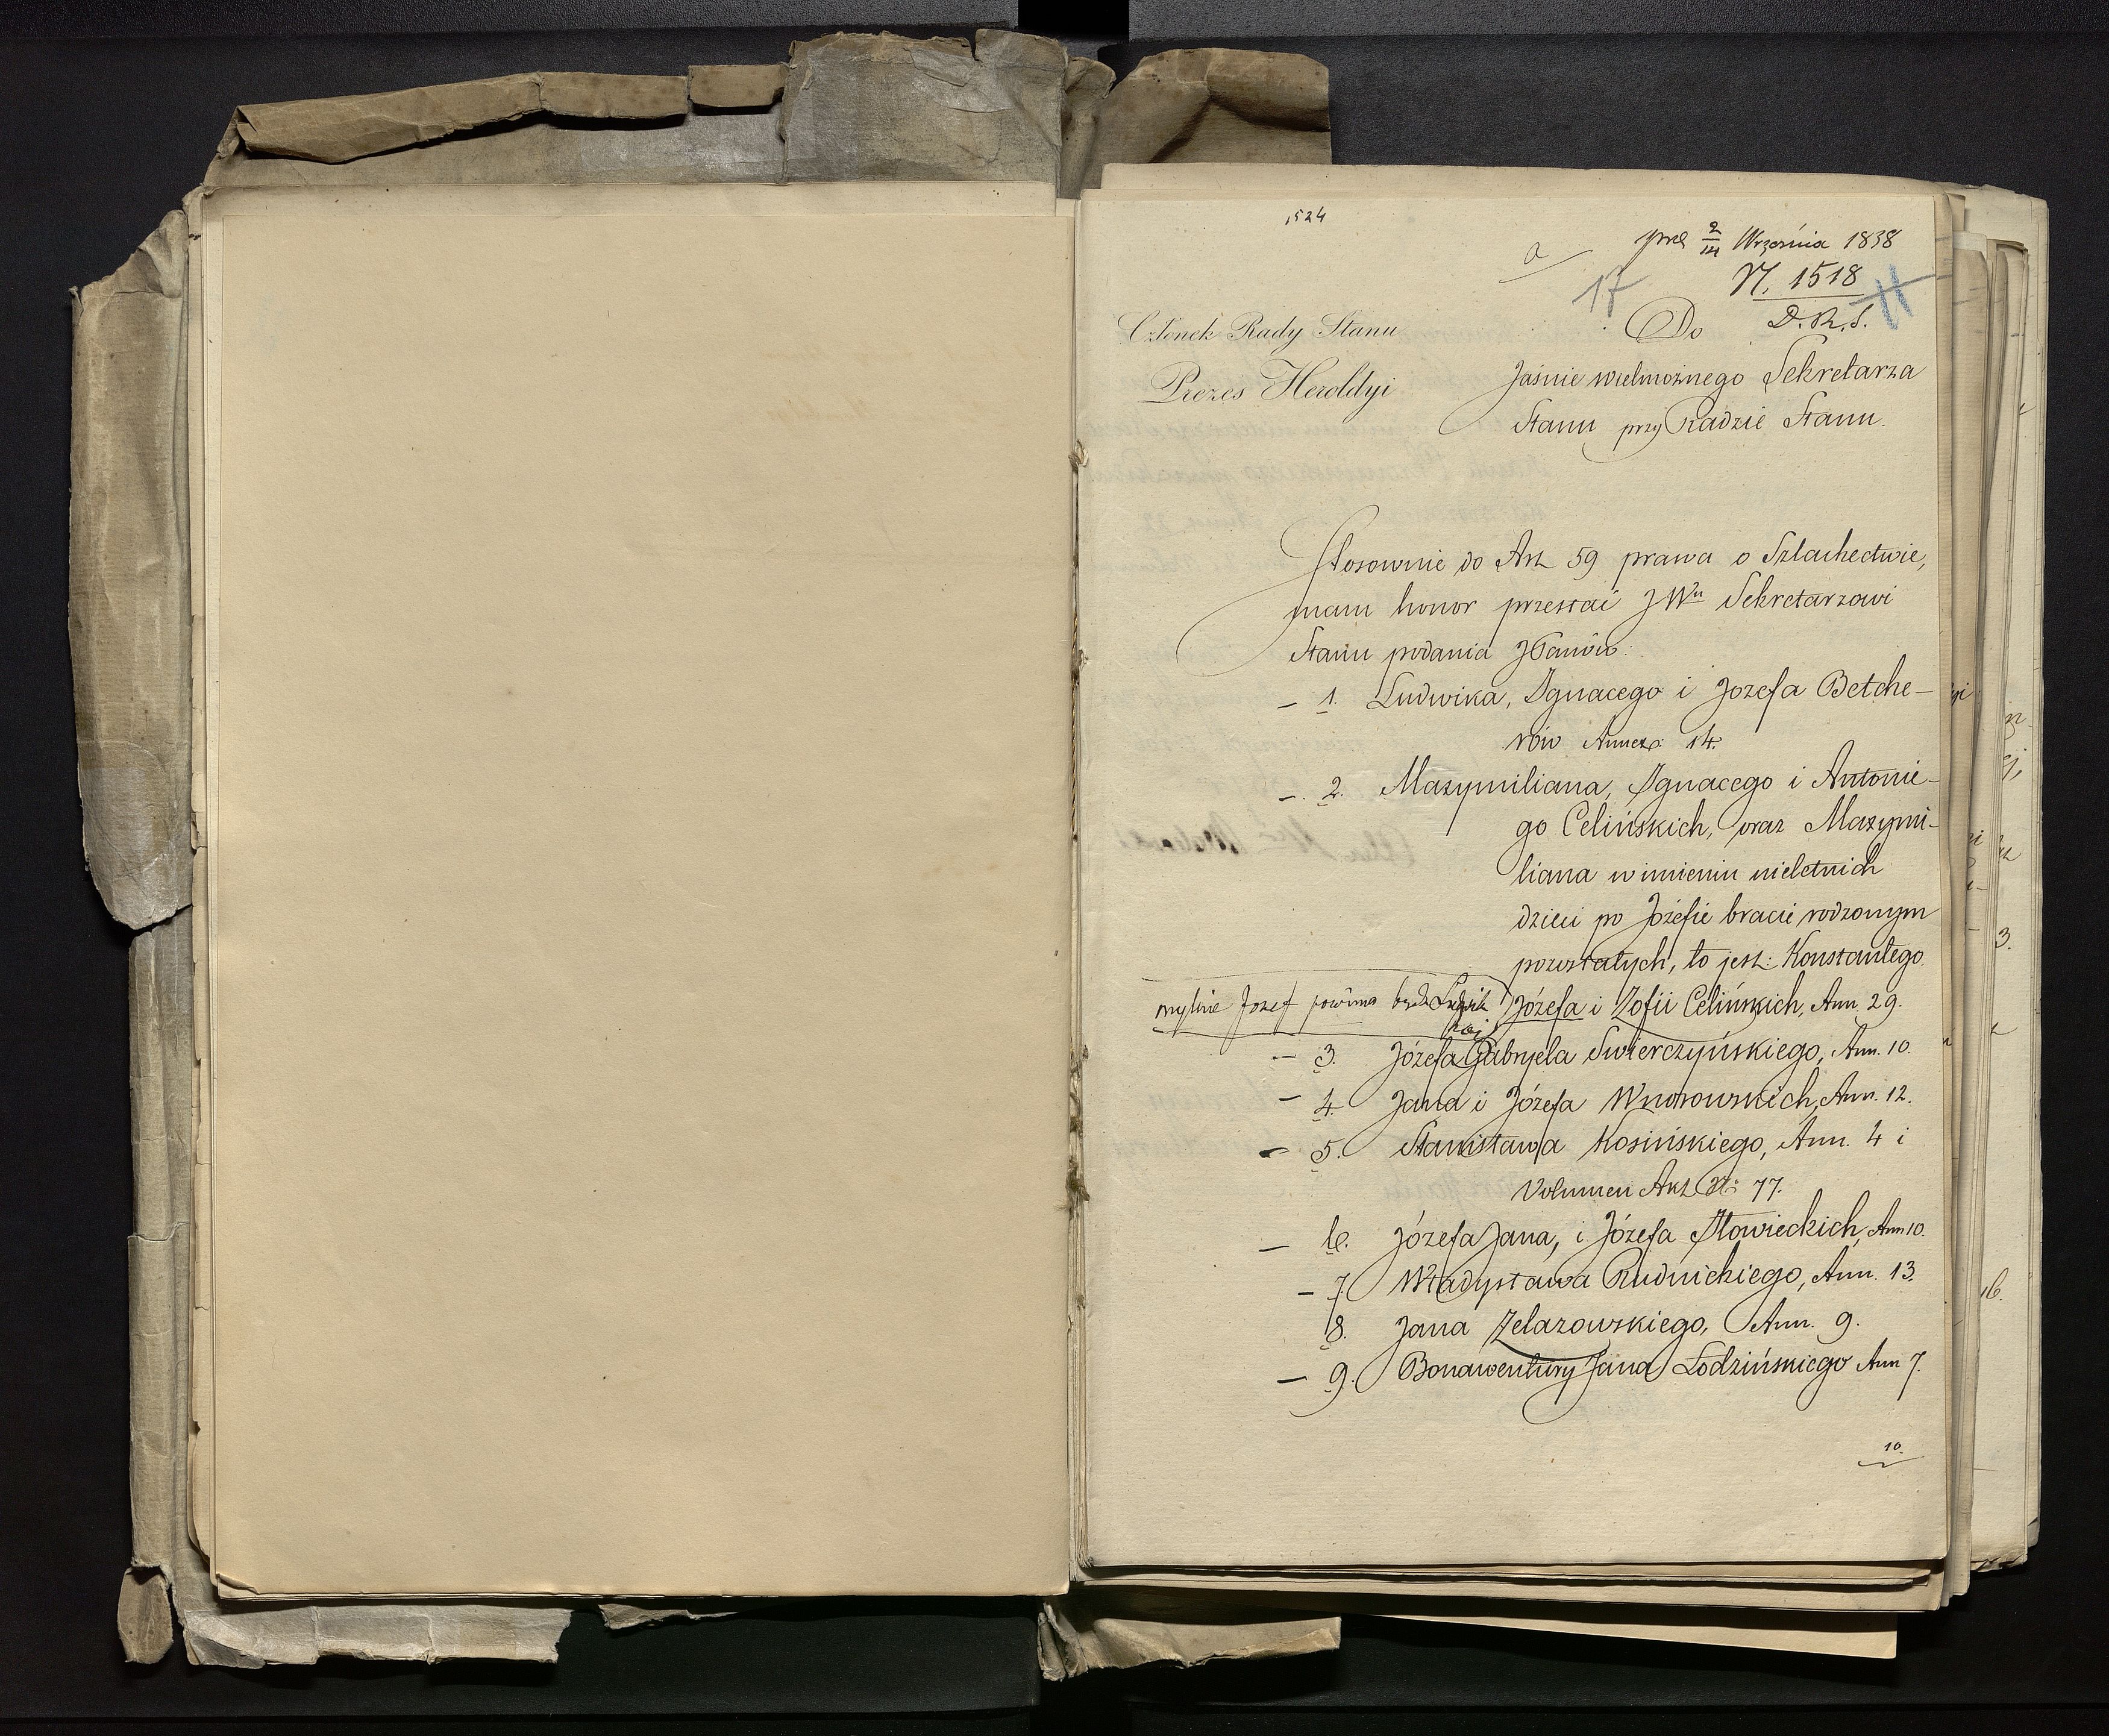 1524
a
prez 2/14 Września 1838
N. 1518
D.R.S.
17
11
Członek Rady Stanu
Prezes Heroldyi
Do
Jaśnie wielmożnego Sekretarza
Stanu przy Radzie Stanu.
Stosownie do Art 59 prawa o Szlachectwie,
mam honor przesłać JWu Sekretarzowi
Stanu podania JPanów:
– 1. Ludwika, Ignacego i Jozefa Betche-
rów Annexo: 14.
– 2. Maxymiliana, Ignacego i Antonie-
go Celińskich, oraz Maxymi-
liana w imieniu nieletnich
dzieci po Józefie bracie rodzonym
pozostałych, to jest: Konstantego
mylnie Jozef powinno być Ludwik
Józefa i Zofii Celińskich, Ann. 29.
– 3. Józefa Gabryela Swierczyńskiego, Ann. 10.
– 4. Jana i Józefa Wnorowskich, Ann. 12.
– 5. Stanisława Kosińskiego, Ann. 4 i
Volumen Akt No 77.
– 6. Józefa Jana, i Józefa Iłowieckich, Ann 10.
– 7. Władysława Rudnickiego, Ann. 13.
8. Jana Zelazowskiego, Ann. 9.
– 9. Bonawentury Jana Lodzińskiego Ann 7.
10.